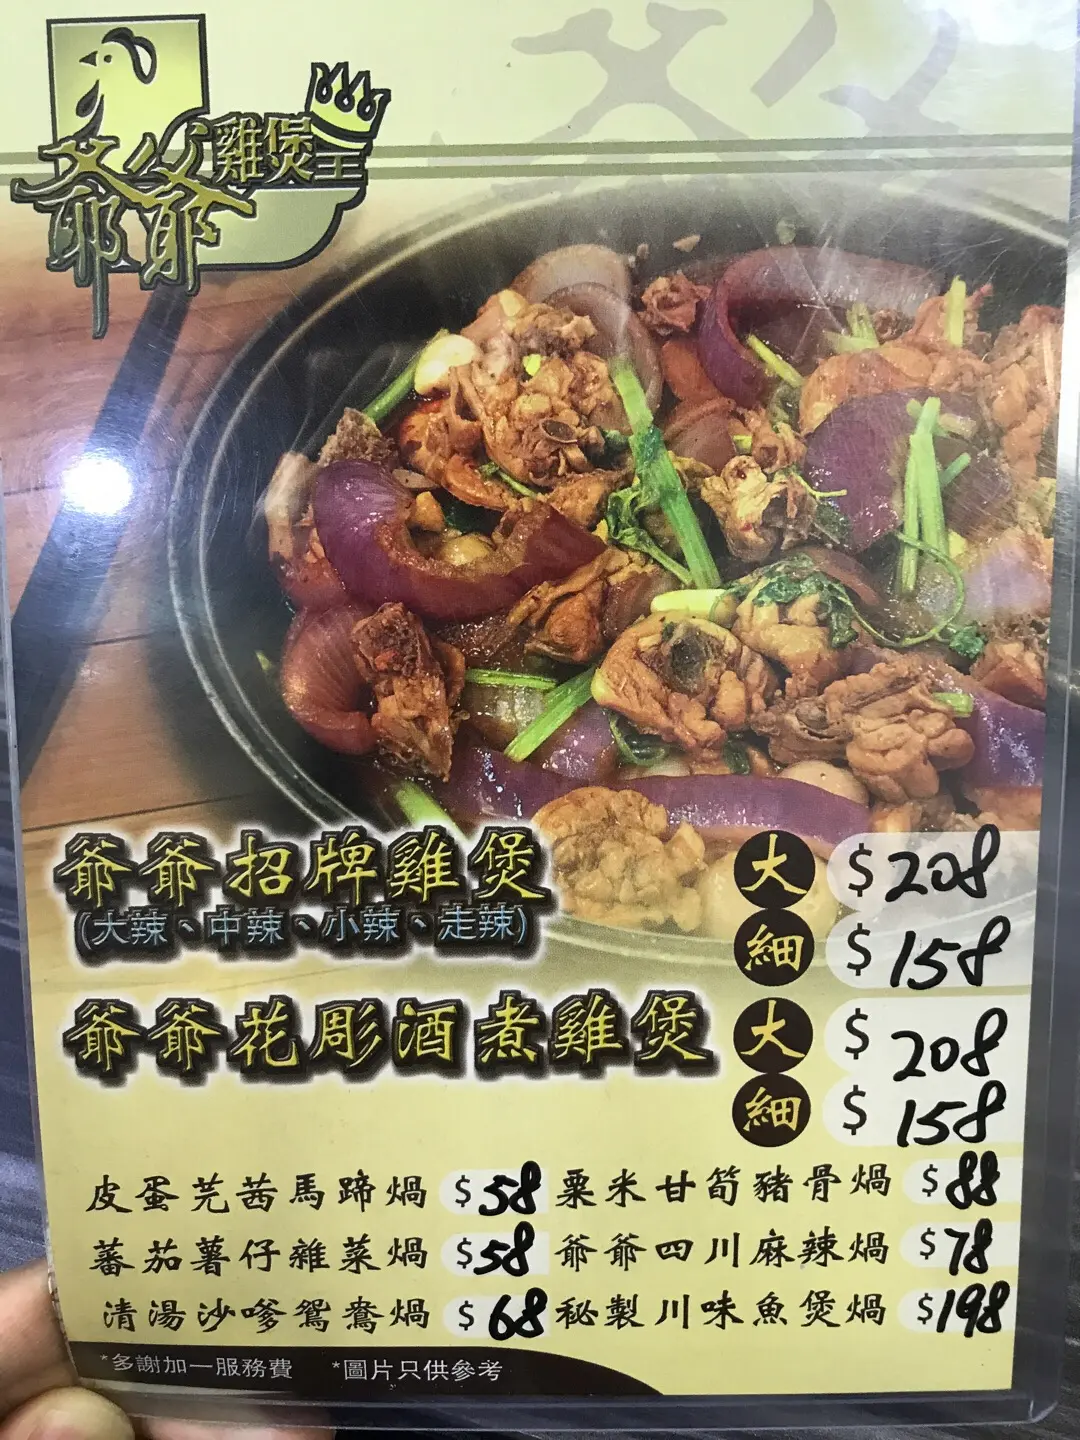 爺爺雞煲王
爺爺招牌雞煲
(大辣、中辣、小辣、走辣)
大 $208
細 $158
爺爺花彫酒煮雞煲
大 $208
細 $158
皮蛋芫茜馬蹄煱 $58
粟米甘筍豬骨煱 $88
蕃茄薯仔雜菜煱 $58
爺爺四川麻辣煱 $78
清湯沙嗲鴛鴦煱 $68
秘製川味魚煲煱 $198
*多謝加一服務費 *圖片只供參考